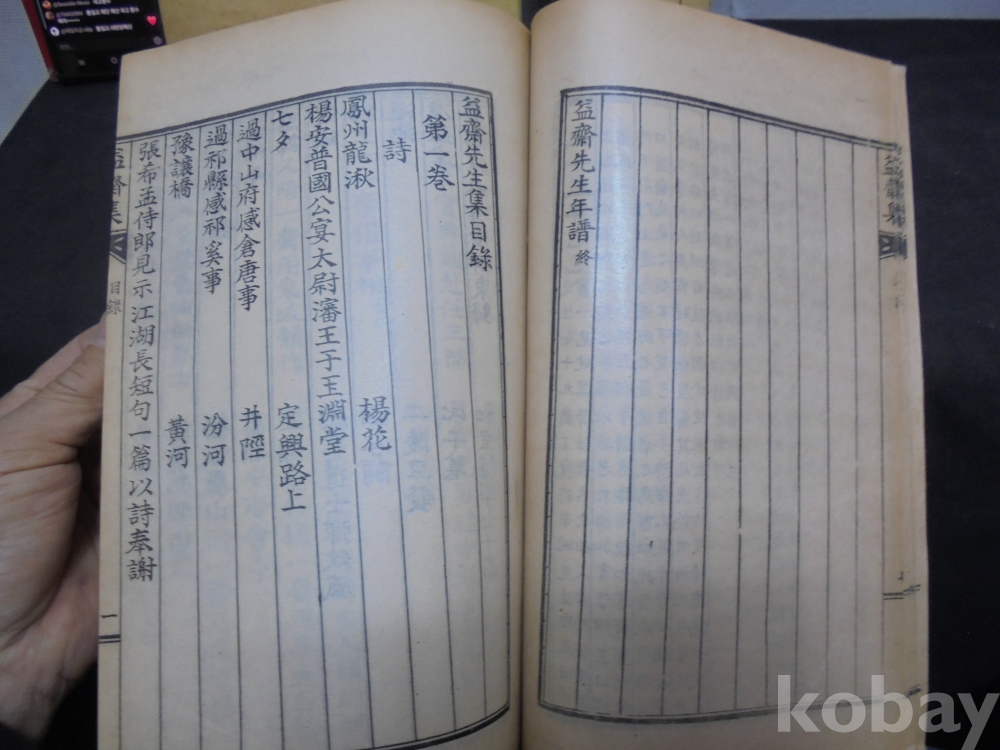 益齋先生年譜 終
益齋先生集目錄
第一卷
詩
鳳州龍湫 楊花
楊安普國公宴太尉瀋王于玉淵堂
七夕 定興路上
過中山府感倉唐事 井陘
過祁縣感祁奚事 汾河
豫讓橋 黃河
張希孟侍郎見示江湖長短句一篇以詩奉謝
益齋集 目錄 一
kobay